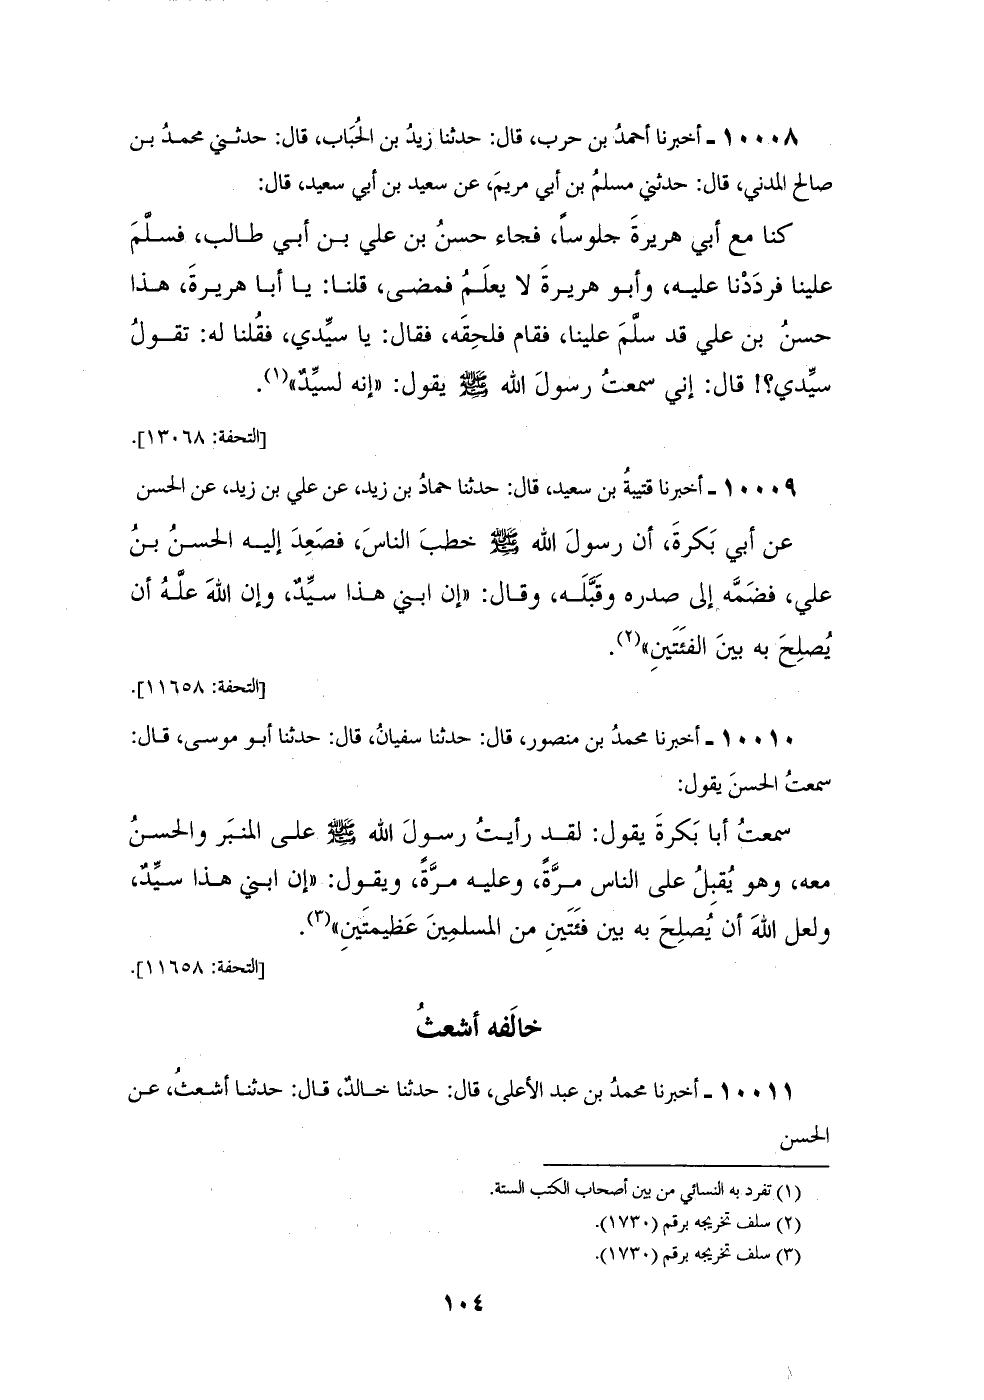 ١٠٠٠٨ ـ أخبرنا أحمدُ بن حرب، قال: حدثنا زيدُ بن الحُبَاب، قال: حدثني محمدُ بن
صالح المدني، قال: حدثني مسلمُ بن أبي مريمَ، عن سعيد بن أبي سعيد، قال:
كنا مع أبي هريرةَ جلوساً، فجاء حسنُ بن علي بن أبي طالب، فسلَّمَ
علينا فردَدْنا عليه، وأبو هريرةَ لا يعلَمُ فمضى، قلنا: يا أبا هريرةَ، هذا
حسنُ بن علي قد سلَّمَ علينا، فقام فلحِقَه، فقال: يا سيِّدي، فقُلنا له: تقولُ
سيِّدي؟! قال: إني سمعتُ رسولَ الله ﷺ يقول: «إنه لسيِّدٌ»(١).
[التحفة: ١٣٠٦٨].
١٠٠٠٩ ـ أخبرنا قتيبةُ بن سعيد، قال: حدثنا حمادُ بن زيد، عن علي بن زيد، عن الحسن
عن أبي بَكرةَ، أن رسولَ الله ﷺ خطبَ الناسَ، فصَعِدَ إليه الحسنُ بنُ
علي، فضَمَّه إلى صدره وقَبَّلَه، وقال: «إن ابني هذا سيِّدٌ، وإن اللهَ علَّهُ أن
يُصلِحَ به بينَ الفئَتَينِ»(٢).
[التحفة: ١١٦٥٨].
١٠٠١٠ ـ أخبرنا محمدُ بن منصور، قال: حدثنا سفيانُ، قال: حدثنا أبو موسى، قال:
سمعتُ الحسنَ يقول:
سمعتُ أبا بَكرةَ يقول: لقد رأيتُ رسولَ الله ﷺ على المنبَر والحسنُ
معه، وهو يُقبِلُ على الناس مرَّةً، وعليه مرَّةً، ويقول: «إن ابني هذا سيِّدٌ،
ولعل اللهَ أن يُصلِحَ به بين فئَتَينِ من المسلمِينَ عَظيمتَينِ»(٣).
[التحفة: ١١٦٥٨].
خالَفه أشعثُ
١٠٠١١ ـ أخبرنا محمدُ بن عبد الأعلى، قال: حدثنا خالدٌ، قال: حدثنا أشعثُ، عن
الحسن
(١) تفرد به النسائي من بين أصحاب الكتب الستة.
(٢) سلف تخريجه برقم (١٧٣٠).
(٣) سلف تخريجه برقم (١٧٣٠).
١٠٤